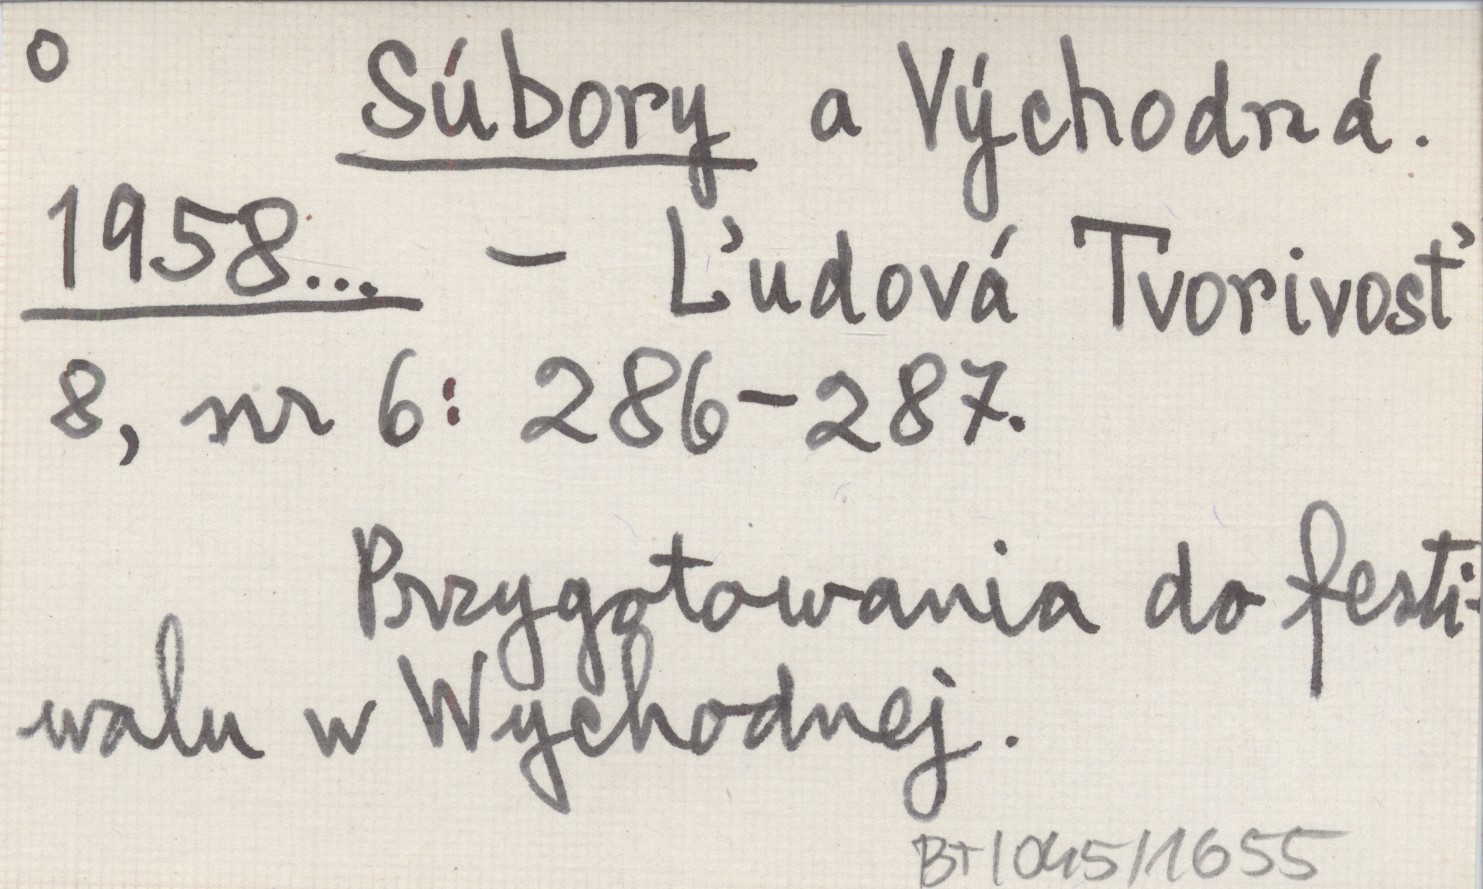 o Súbory a Východná.
1958... – Ľudová Tvorivosť
8, nr 6: 286-287.
Przygotowania do festi-
walu w Wychodnej.
BT/045/1655